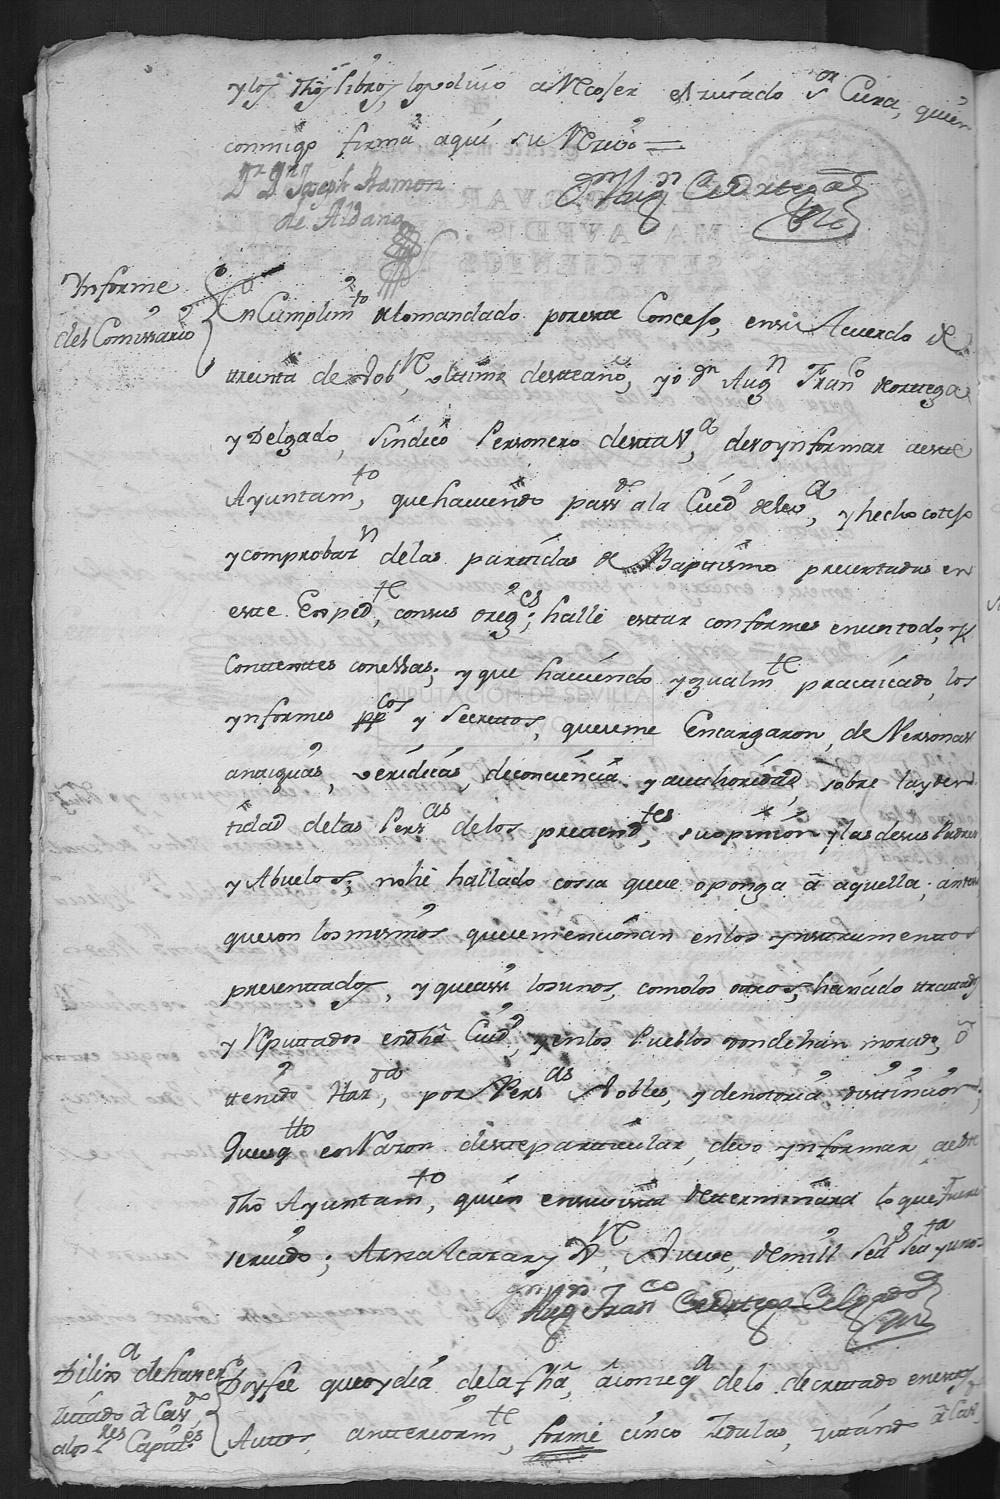 y los dhôs libros, los volvio a recoser el zitado Sor Cura, quien
conmigo firmâ aqui su Rêzivo =
Dr Dn Joseph Ramon
de Aldana
Dn Augn de Ortega
Informe
del Comissario
En Cumplimto de lo mandado por este Concejo, en su Acuerdo de
treinta de Nobre ultimo deste año, yo Dn Augn Franco de Ortega
y Delgado, Sindico Personero desta Va, devo ynformar a este
Ayuntamto, que haviendo passdo a la Ciud de , y hecho cotejo
y comprobazn de las partidas de Baptismo presentadas en
este Expedte, con sus origes; hallè estar conformes en un todo, y
contextes con ellas; y que haviendo ygualmte practicado, los
ynformes ppcos y secretos, que se me Encargaron, de Personas
antiguas, veridicas, de conciencia y authoridad, sobre la yden
tidad de las Persas de los pretendtes, su opinion, y las de sus Padres
y Abuelos; no hè hallado cossa que se oponga â aquella; antes
que son los mismos que se mencionan en los ynstrumentos
presentados, y que assi los unos, como los otros, han sido tratados
y Reputados en dhâ Ciud, y en los Pueblos donde han morado, ô
tenido Hazda, por Persas Nobles, y de notoria distincion;
Que es qtto en Razon deste particular, devo ynformar, a este
dhô Ayuntamto, quien en su vista determinarà lo que fuere
servido; Aznalcazar y Dre, Nueve, de mill Setts Setta y uno
Augn Franco de Ortega y Delgado
DIPUTACIÓN DE SEVILLA
Dilixa de haver
zitado â Cavdo
a los Sres Capites
Doy fee que oy dia de la fhâ, â conseqa de lo decretado en estos
Auttos, anteriormte, formè cinco Zedulas, zitando â Cavdo